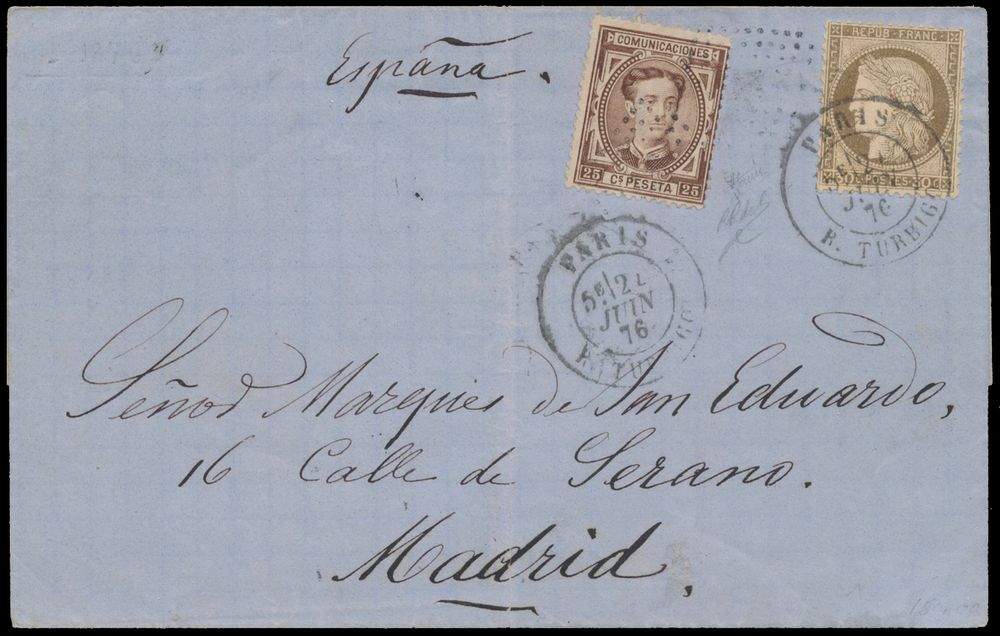 España.
COMUNICACIONES
25 Cs PESETA 25
REPUB. FRANC.
30 POSTES 30
PARIS
JUIN
76
R. TURBIGO
PARIS
5E 2
JUIN
76
R. TURBIGO
Señor Marques de San Eduardo,
16 Calle de Serano.
Madrid,